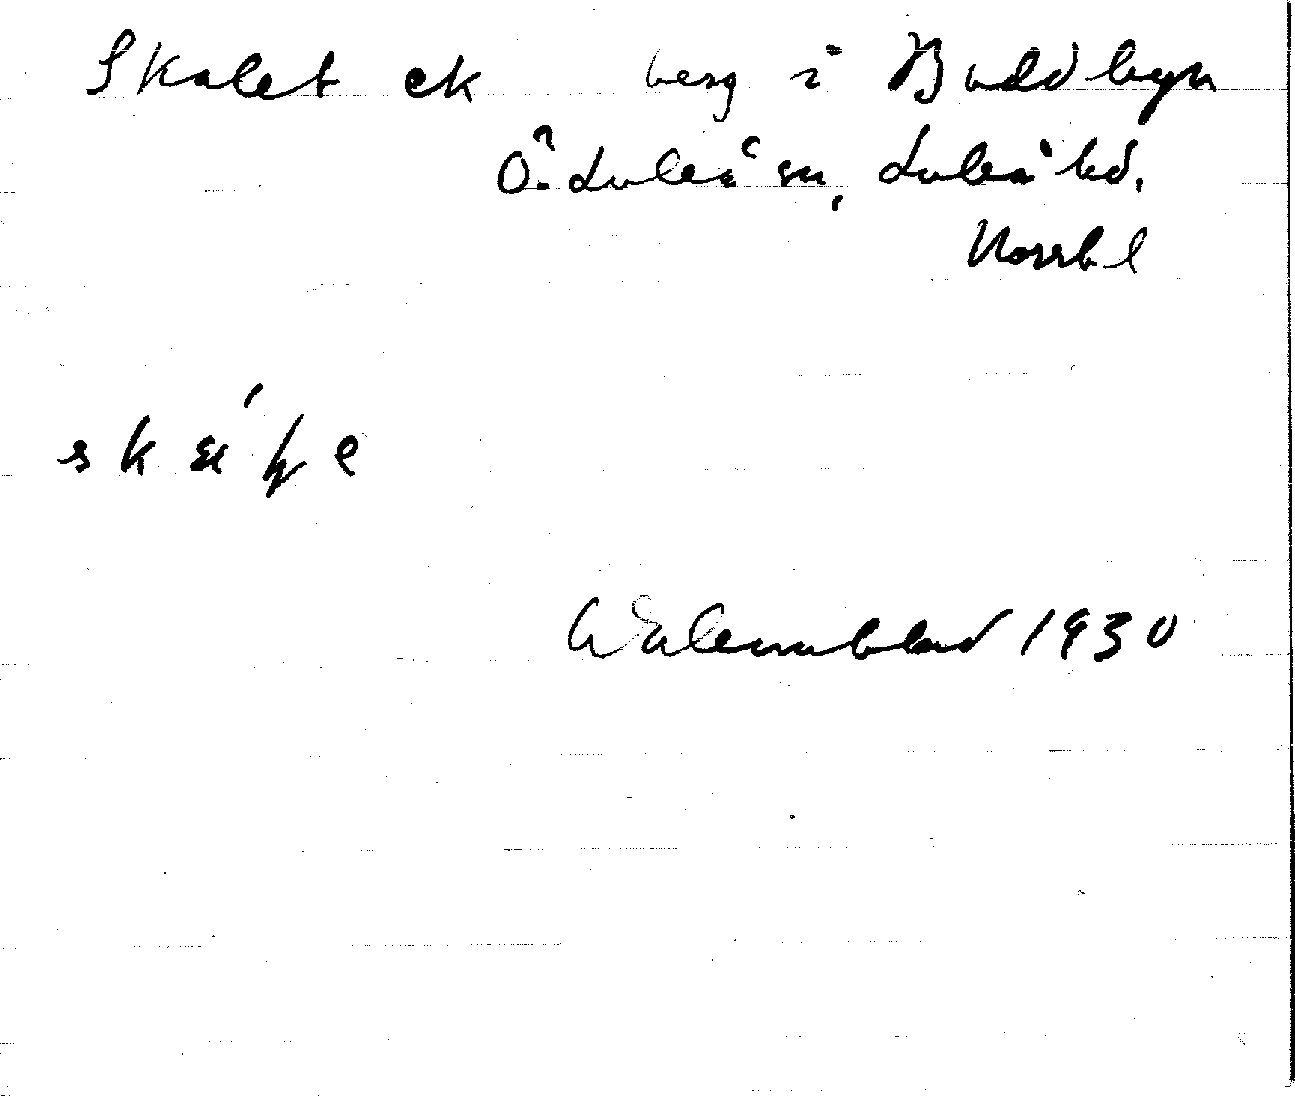 Skalet ek berg i Buddbyn
Ö. Luleå sn, Luleå hd.
Norrb l
Walemblad 1930